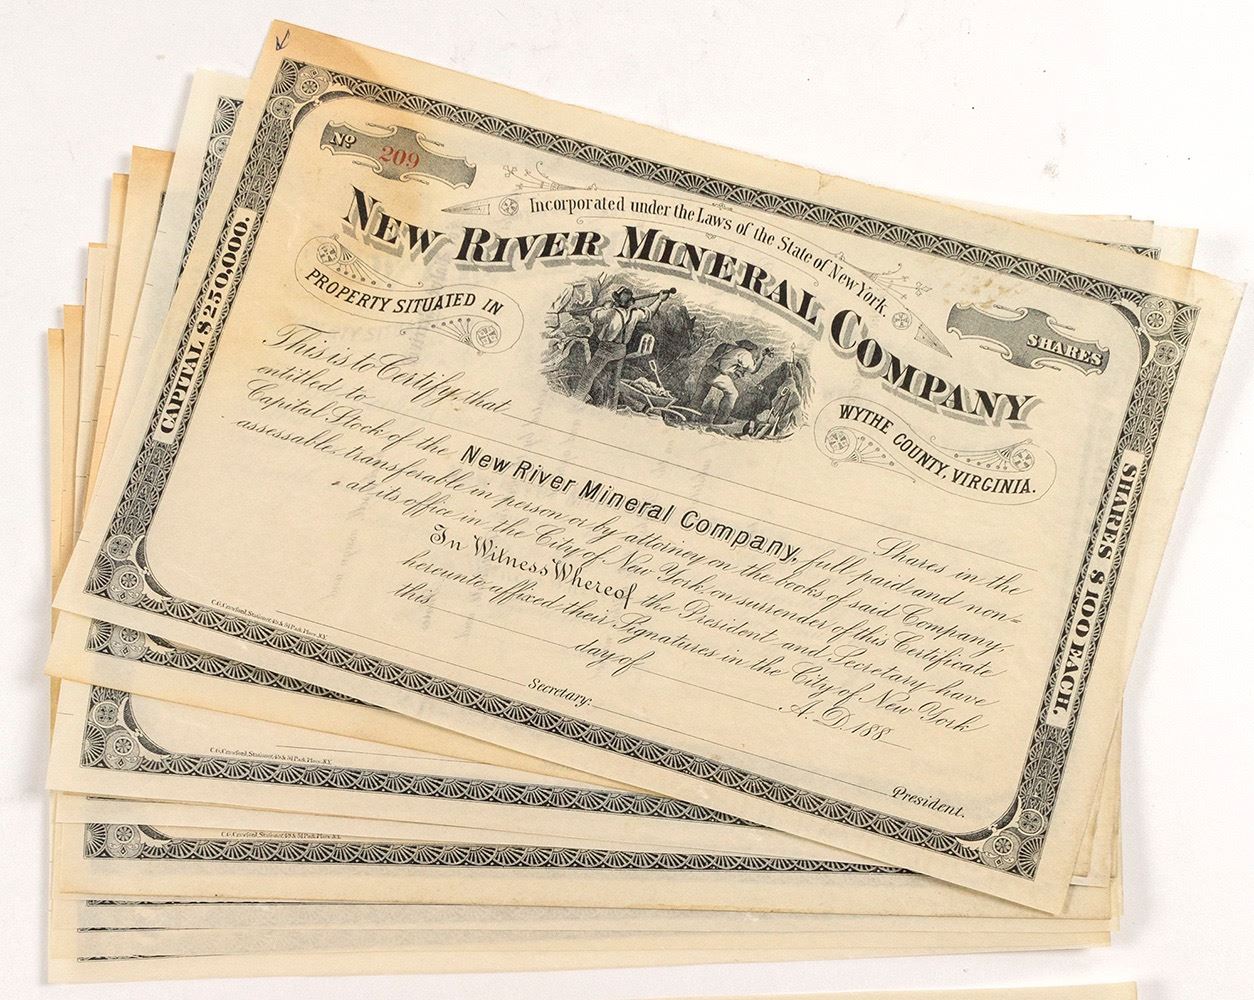 Nº 209
Incorporated under the Laws of the State of New York
SHARES
NEW RIVER MINERAL COMPANY
PROPERTY SITUATED IN
WYTHE COUNTY, VIRGINIA.
CAPITAL $250,000.
SHARES $100 EACH.
This is to Certify, that
entitled to Shares in the
Capital Stock of the New River Mineral Company, full paid and non-
assessable, transferable in person or by attorney on the books of said Company,
at its office in the City of New York on surrender of this Certificate
In Witness Whereof the President and Secretary have
hereunto affixed their Signatures in the City of New York
this day of A.D. 188
Secretary. President.
C.G. Crawford, Stationer, 49 & 51 Park Place, N.Y.
C.G. Crawford, Stationer, 49 & 51 Park Place, N.Y.
C.G. Crawford, Stationer, 49 & 51 Park Place, N.Y.